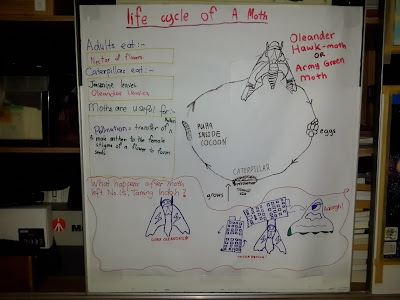 life cycle of A Moth
Adults eat:-
Nectar of flowers
Caterpillar eat:-
Jasmine leaves
Oleander leaves
Moths are useful for:-
Pollination = transfer of
A male anther to the female
stigma of a flower to form
seeds
Oleander
Hawk-moth
OR
Army Green
Moth
eggs
CATERPILLAR
grows
PUPA
INSIDE
COCOON
What happen after Moth
left No.15, Taming Indah ?